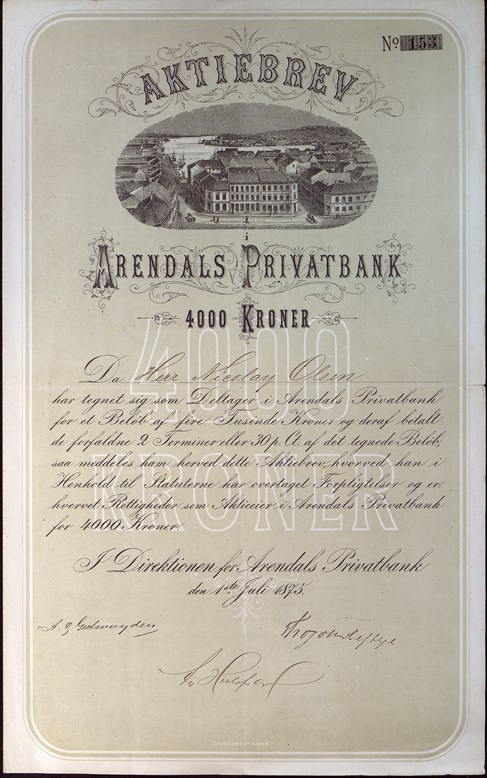 No 153
AKTIEBREV
i
ARENDALS PRIVATBANK
4000 KRONER
4000
KRONER
Da Herr Nicolay Olsen
har tegnet sig som Deltager i Arendals Privatbank
for et Beløb af fire Tusinde Kroner og deraf betalt
de forfaldne 2 Terminer eller 30 p. Ct. af det tegnede Beløb,
saa meddeles ham herved dette Aktiebrev, hvorved han i
Henhold til Statuterne har overtaget Forpligtelser og er-
hvervet Rettigheder som Aktieeier i Arendals Privatbank
for 4000 Kroner.
I Direktionen for Arendals Privatbank
den 1ste Juli 1875.